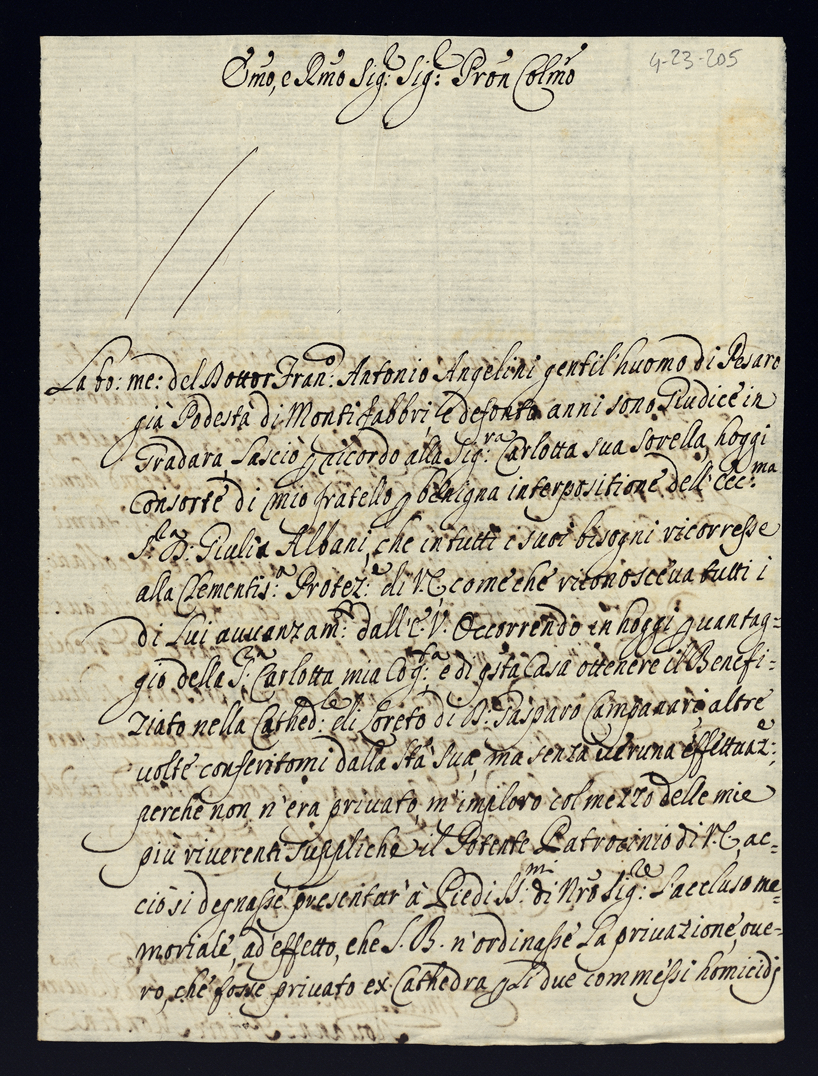 4-23-205
Emo, e Rmo Sig.r Sig.r Pron Colmo
La bo: me: del Dottor Fran.co Antonio Angelini gentil'huomo di Pesaro
già Podestà di Monti fabbri, e defonto anni sono Giudice in
Gradara lasciò p ricordo alla Sig.ra Carlotta sua sorella, hoggi
consorte di mio fratello p benigna interpositione dell'ecc.ma
S.a D. Giulia Albani, che in tutti i suoi bisogni ricorresse
alla Clementis.a Protez.e di V.E. come che riconosceva tutti i
di lui avvanzam.ti dall'E.V. Occorrendo in hoggi p vantag=
gio della S.ra Carlotta mia Cog.ta e di q̃sta Casa ottenere il Benefi=
ziato nella Cathed.le di Loreto di D. Gasparo Campanari altre
volte conferitomi dalla Stà Sua, ma senza veruna effettuaz.e,
perche non n'era privato, m'imploro col mezzo delle mie
più riverenti suppliche il Potente Patrocinio di V.E., ac=
ciò si degnasse presentar' à Piedi SS.mi di Nrõ Sig.re l'accluso me=
moriale, ad effetto, che S. B. n'ordinasse la privazione, ove=
ro, che fosse privato ex Cathedra p li due commessi homicidj